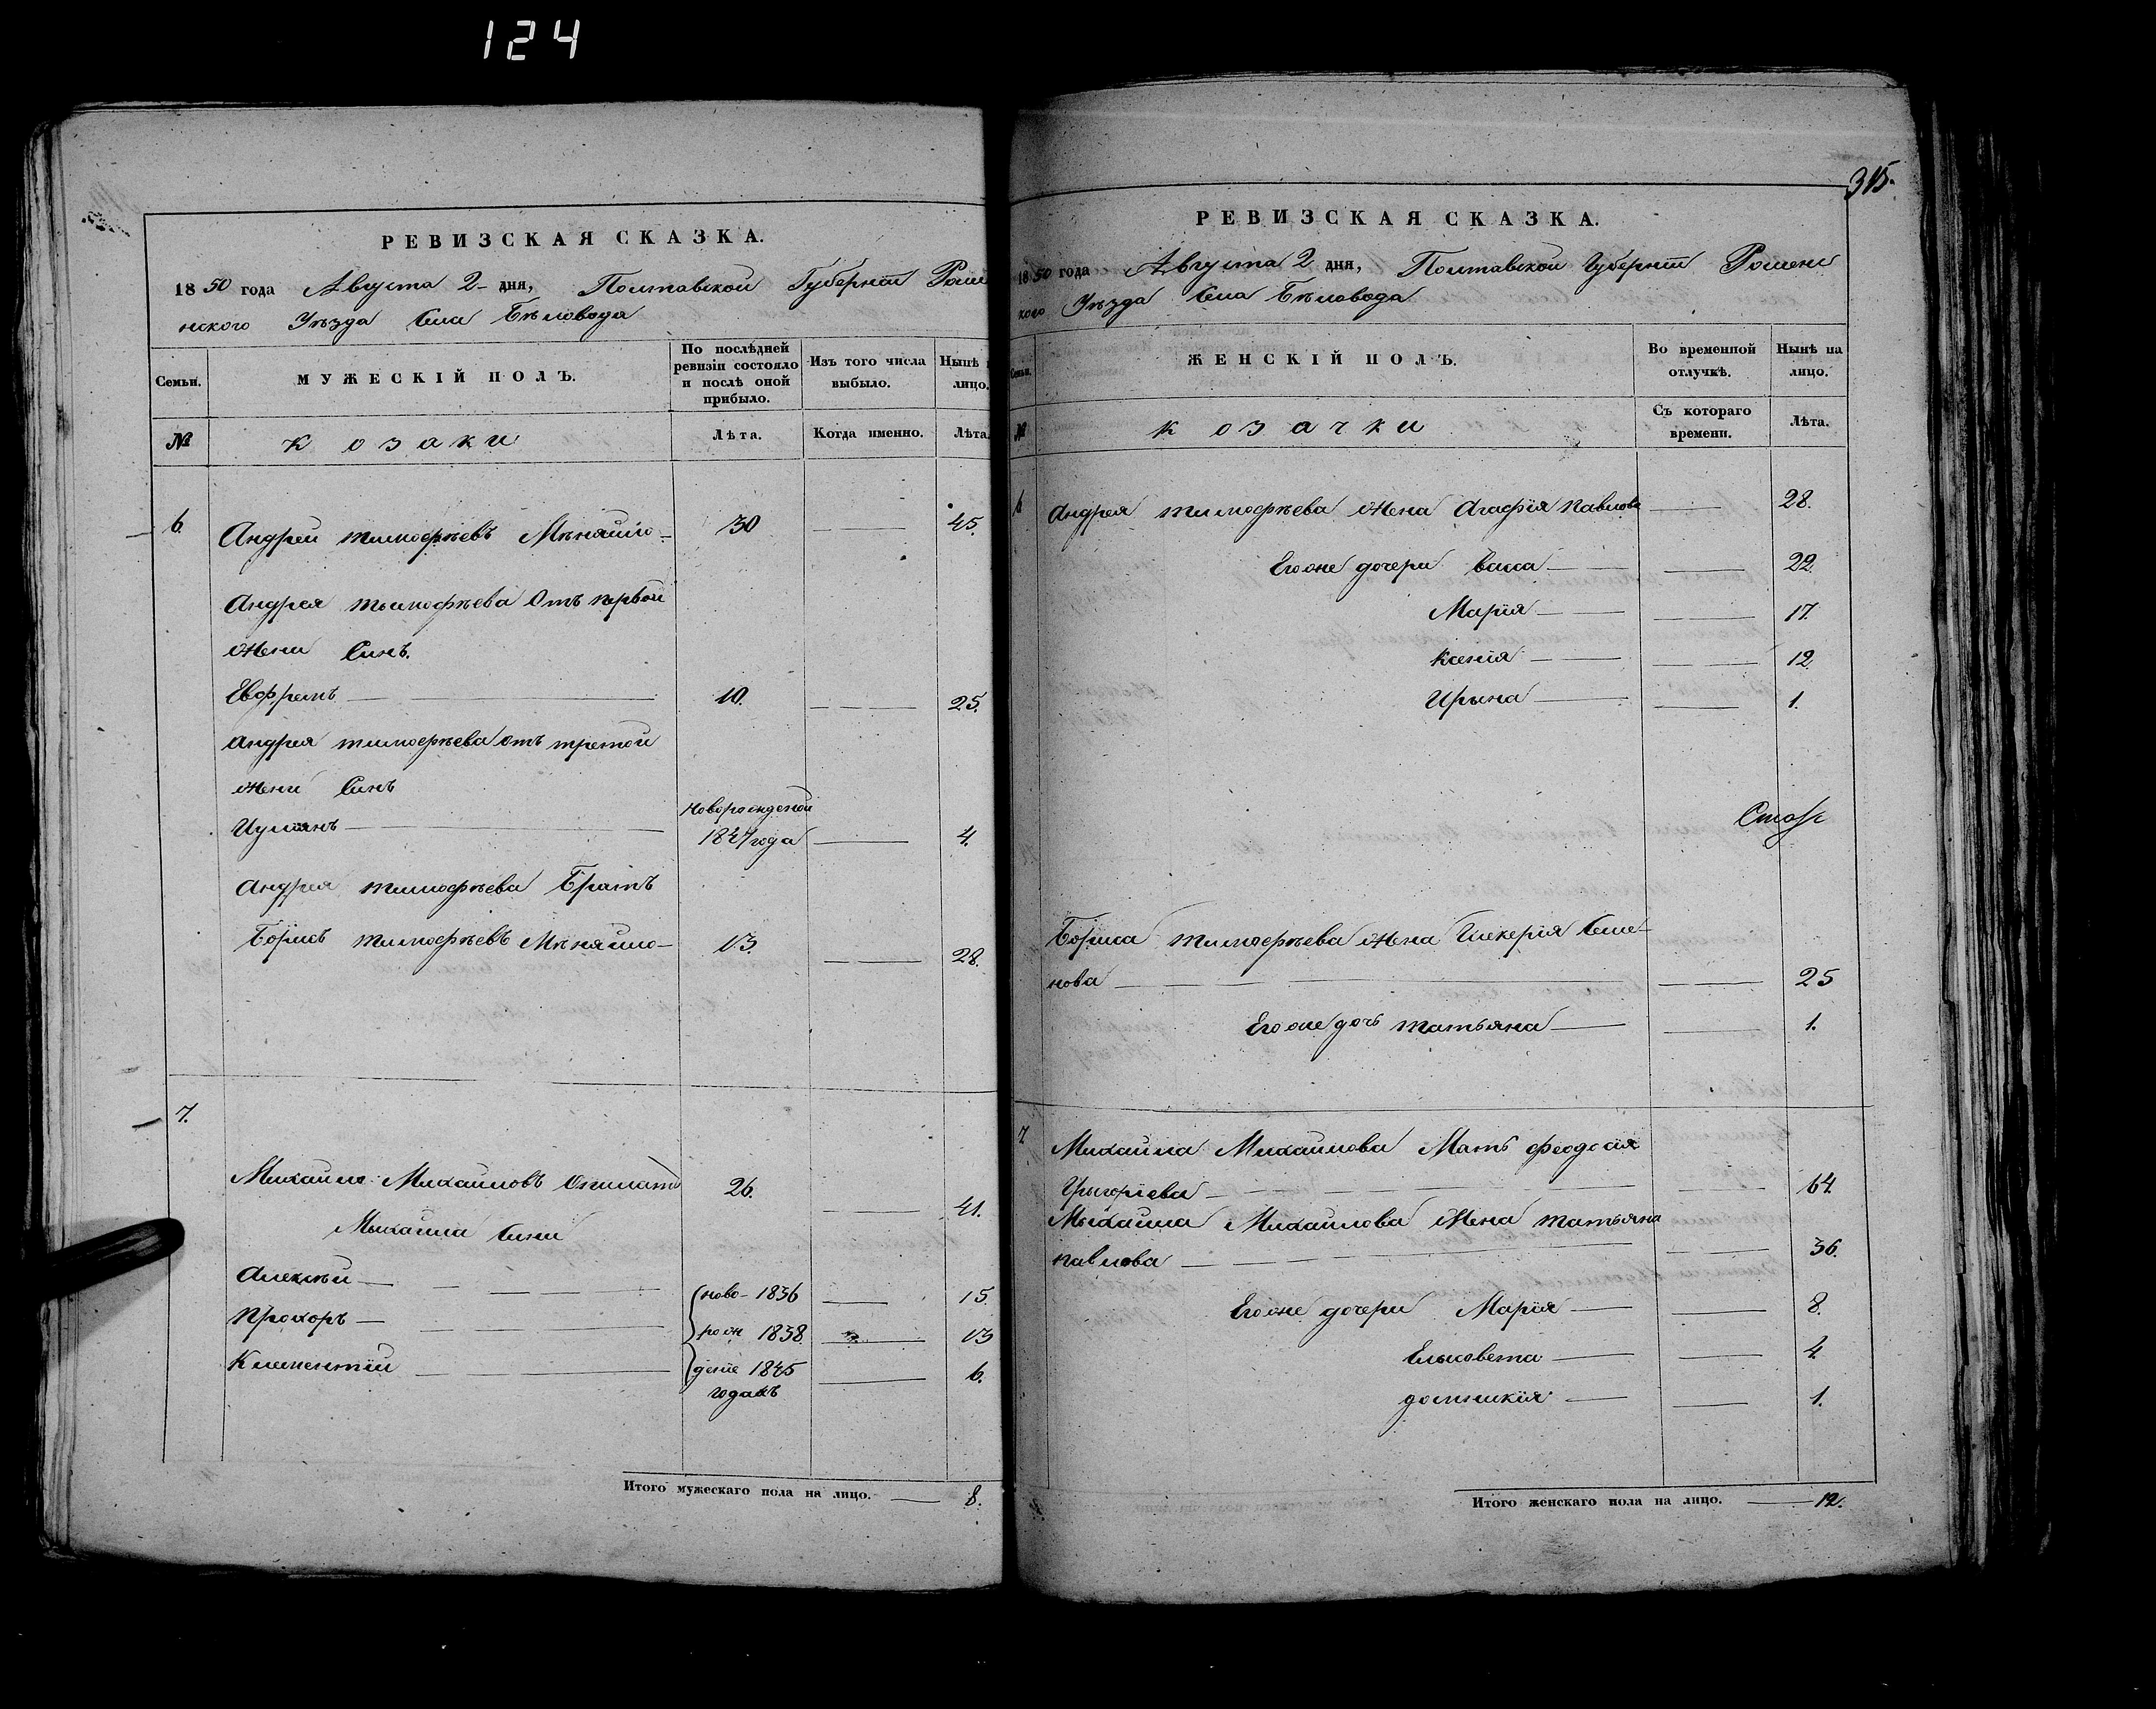 124
РЕВИЗСКАЯ СКАЗКА.
1850 года Августа 2 дня, Полтавской Губернiи Роме
нского Уѣзда Села Бѣловода
Семьи.
МУЖЕСКІЙ ПОЛЪ.
По послѣдней ревизіи состояло и послѣ оной прибыло.
Изъ того числа выбыло.
Нынѣ лицо.
№
козаки
Лѣта.
Когда именно.
Лѣта.
6. Андрей тимофѣевъ 30 45.
Андрея тымофѣева Отъ первой
жени Синъ.
Евфремъ 10. 25.
Андрея тимофѣева отъ третой
жени Синъ
Новорожденой
1847 года 4.
Андрея тимофѣева Братъ
Борисъ тимофѣевъ 13. 28.
7.
Михайло Михайловъ 26. 41.
Мыхайла Сини
Алексѣй ново- 1836 15.
Прохоръ рож 1838 13
Климентій деніе 1845 6.
годахъ
Итого мужескаго пола на лицо. 8.
315.
РЕВИЗСКАЯ СКАЗКА.
1850 года Августа 2 дня, Полтавской Губерніи Роменс
кого Уѣзда Села Бѣловода
Семьи.
ЖЕНСКІЙ ПОЛЪ.
Во временной отлучкѣ.
Нынѣ на лицо.
№
козачки
Съ котораго времени.
Лѣта.
6 Андрея тимофѣева жена Агафія павлова 28.
Егоже дочери васса 22.
Марія 17.
Ксенія 12.
Ирына 1.
Бориса тимофѣева жена Гликерія Семе-
нова 25
Егоже дочь татьяна 1.
7. Михайла Михайлова Мать феодосія
Грыгоріева 64.
Мыхайла Михайлова Жена татьяна
павлова 36.
Егоже дочери Марія 8.
Елысавета 4.
домникія 1.
Итого женскаго пола на лицо. 12.